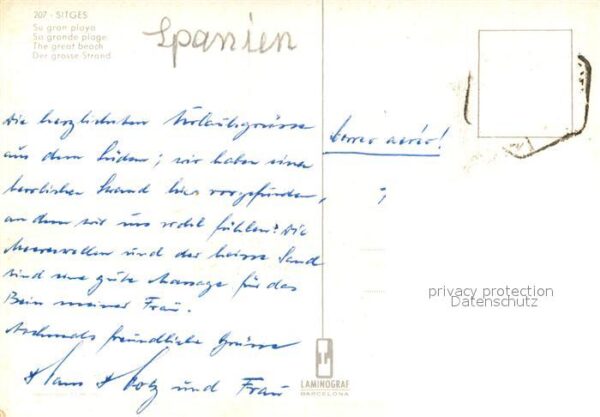 207 - SITGES
Su gran playa
Sa grande plage
The great beach
Der grosse Strand
Spanien
Die herzlichsten Urlaubsgrüsse
aus dem Süden; wir haben einen
herrlichen Strand hier vorgefunden,
an dem wir uns wohl fühlen! Die
Meereswellen und der heisse Sand
sind eine gute Massage für das
Bein meiner Frau.
Nochmals freundliche Grüsse
Hans und Frau
Correo aereo!
privacy protection
Datenschutz
LAMINOGRAF
BARCELONA